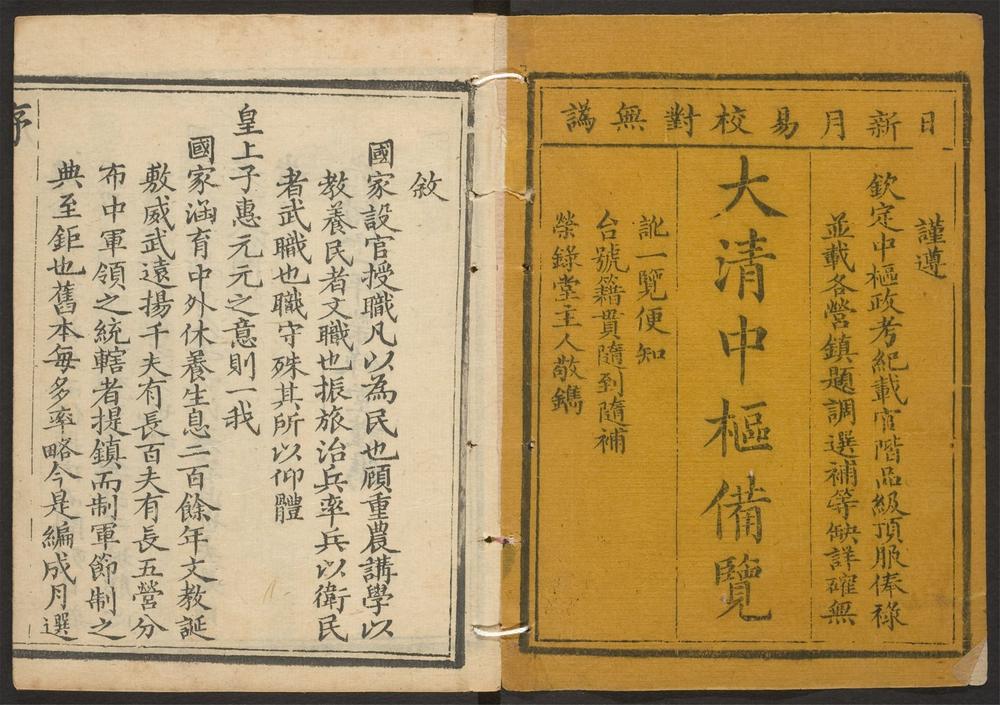 日新月易校對無譌
謹遵
欽定中樞政考紀載官階品級頂服俸祿
並載各營鎮題調選補等缺詳確無
大清中樞備覽
訛一覽便知
台號籍貫隨到隨補
榮錄堂主人敬鐫
敘
國家設官授職凡以為民也顧重農講學以
教養民者文職也振旅治兵率兵以衛民
者武職也職守殊其所以仰體
皇上子惠元元之意則一我
國家涵育中外休養生息二百餘年文教誕
敷威武遠揚千夫有長百夫有長五營分
布中軍領之統轄者提鎮而制軍節制之
典至鉅也舊本每多率略今是編成月選
序